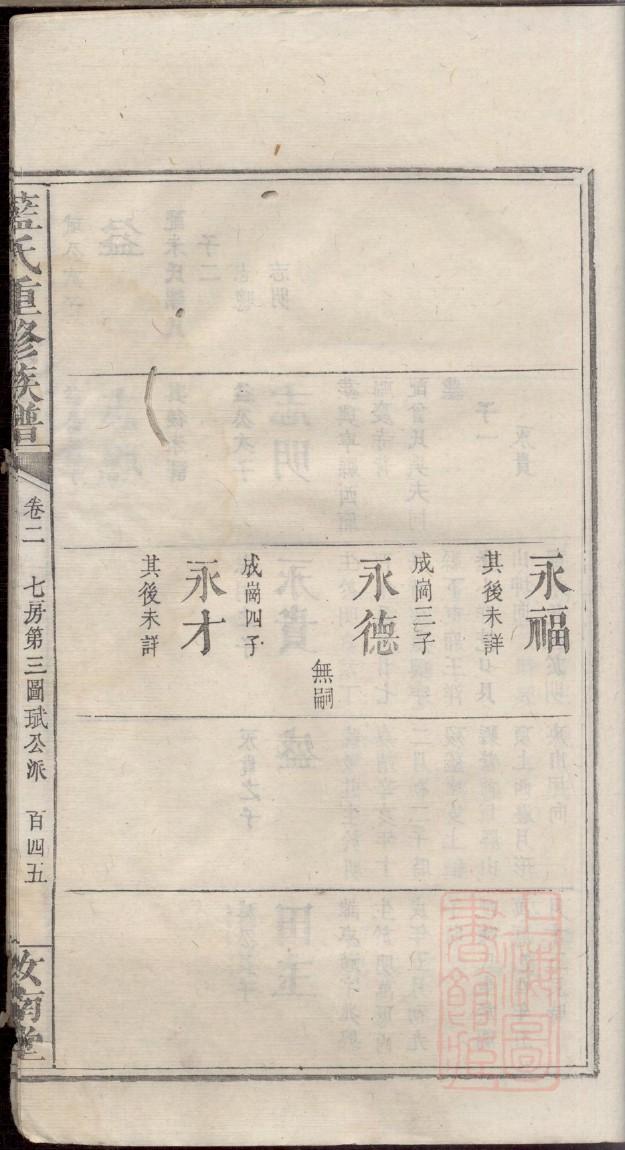 永福
其後未詳
成崗三子
永德
無嗣
成崗四子
永才
其後未詳
藍氏重修族譜
卷二
七房第三圖珷公派
百四五
汝南堂